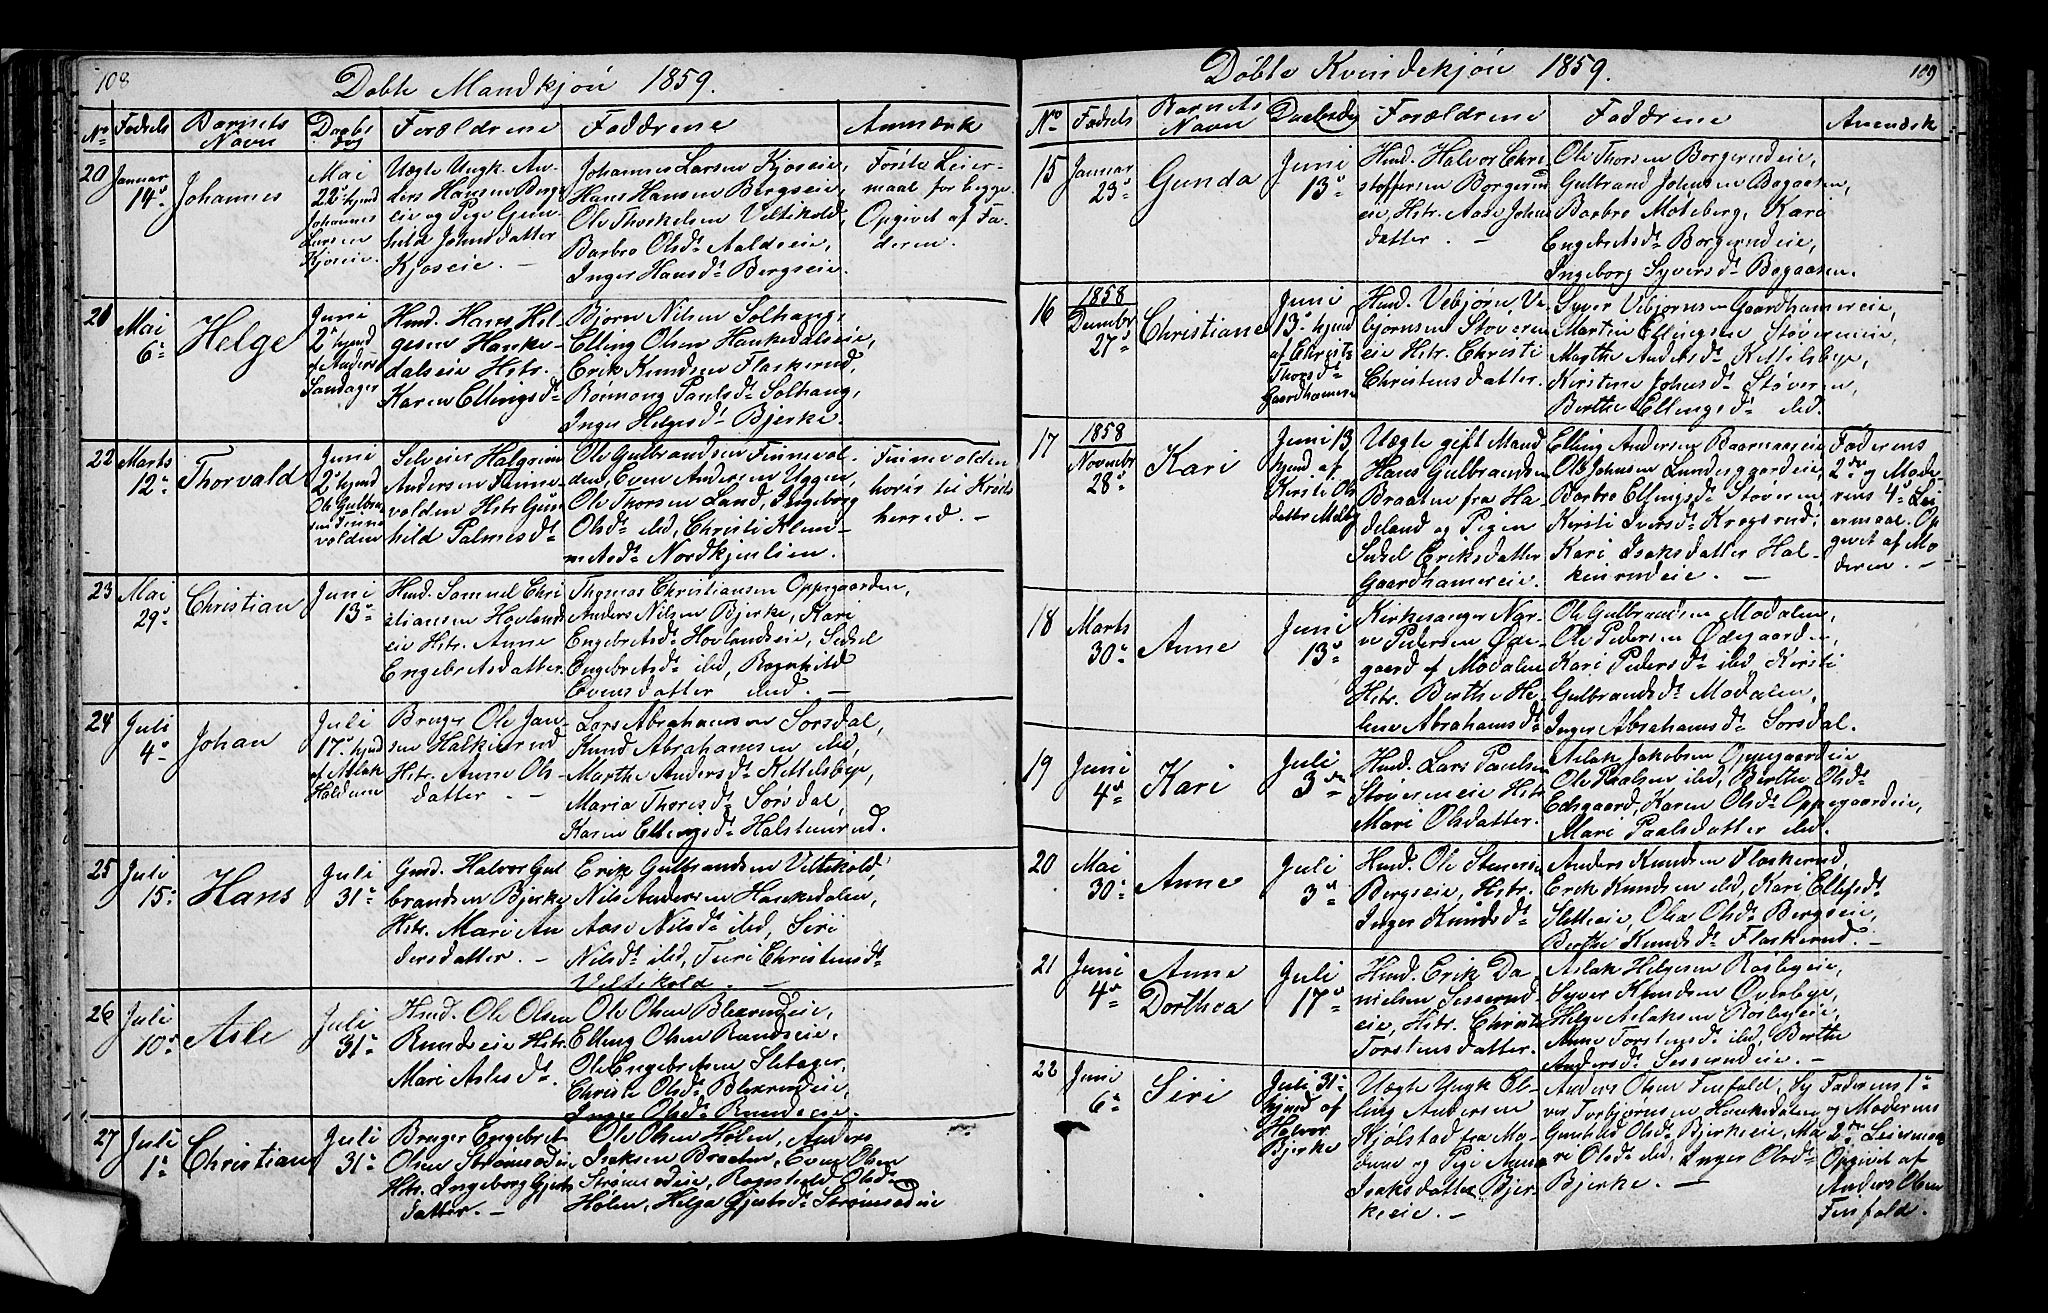 108
Døbte Mandkjøn 1859.
No Fødsels Barnets Navn Daabs dag Forældrene Faddrene Anmærk
20 Januar 14de Johannes
Mai 22de hjmd Johannes Larsen Kjoseie.
Uægte Ungk. An-
ders Hansen Bergs
eie og Pige Gun-
hild Johnsdatter
Kjoseie. —
Johannes Larsen Kjoseie,
Hans Hansen Bergseie,
Ole Thorkelsen Veltikold,
Barbro Olsdt. Aaldseie,
Inger Hansdt. Bergseie.
Første Leier-
maal for begge.
Opgivet af Fa-
deren.
21 Mai 6te Helge
Juni 2den hjmd af Anders Sandager
Husmd. Hans Hel-
gesen Hanke-
dalseie Hstr.
Karen Ellingsdt.
Bjørn Nilsen Solhaug,
Elling Olsen Hankedalseie,
Erik Knudsen Flaskerud,
Rønnaug Paulsdt. Solhaug,
Inger Helgesdt. Bjerke.
22 Marts 12te Thorvald
Juni 2den hjmd Ole Gulbrandsen Finnevolden
Selveier Halgrim
Andersen Finne-
volden Hstr. Gun
hild Palmesdt.
Ole Gulbrandsen Finnevol-
den, Even Andersen Uggen,
Ole Thorsen Land, Ingeborg
Olsdt. ibid, Christi Klem-
metsdt. Nordkjenlien.
Finnevolden
hører til Kröds
herred. —
23 Mai 29de Christian
Juni 13de
Husmd. Samuel Chri
stiansen Hovlands
eie Hstr. Anne
Engebretsdatter.
Thomas Christiansen Oppegaarden,
Anders Nilsen Bjerke, Kari
Engebretsdt. Hovlandseie, Sidsel
Engebretsdt. ibid, Ragnhild
Evensdatter ibid. —
24 Juli 4de Johan
Juli 17de hjmd af Aslak Haldum
Bruger Ole Jan-
sen Halkinrud
Hstr. Anne Ols-
datter. —
Lars Abrahamsen Sørsdal,
Knud Abrahamsen ibid,
Marthe Andersdt. Kittelsbye,
Maria Thoresdt. Sørsdal,
Karen Ellingsdt. Halstenrud.
25 Juli 15de Hans
Juli 31te
Gmd. Halvor Gul
brandsen Bjerke
Hstr. Mari An
dersdatter. —
Erik Gulbrandsen Veltikold,
Nils Andersen Hankedalen,
Aase Nilsdt. ibid, Siri
Nilsdt. ibid, Turi Christensdt.
Veltikold. —
26 Juli 10de Asle
Juli 31te
Husmd. Ole Olsen
Rundseie Hstr.
Mari Aslesdt.
Ole Olsen Blexrudeie,
Elling Olsen Rundseie,
Ole Engebretsen Sletager,
Christi Olsdt. Blexrudeie,
Inger Olsdt. Rundseie.
27 Juli 1te Christian
Juli 31te
Bruger Engebret
Olsen Strømsodeie
Hstr. Ingeborg Gjerts
datter. —
Ole Olsen Hølen, Anders
Isaksen Braaten, Even Olsen
Strømsodeie, Ragnhild Olsdt.
Hølen, Helga Gjertsdt. Strømsodeie
109
Døbte Kvindekjøn 1859.
No Fødsels Barnets Navn Daabsdag Forældrene Faddrene Anmærk
15 Januar 23de Gunda
Juni 13de
Husmd. Halvor Chri-
stoffersen Borgerud
eie, Hstr. Aase Johns
datter. —
Ole Thorsen Borgerudeie,
Gulbrand Johnsen Bogaasen,
Barbro Moteberg, Kari
Engebretsdt. Borgerudeie,
Ingeborg Syversdt. Bogaasen.
16 1858 Decembr 27de Christiane
Juni 13de hjmd af Christi Thorsdt. Gaardhammere
Husmd. Vebjørn Ve-
bjørnsen Støveren
eie Hstr. Christi
Christensdatter.
Syver Vebjørnsen Gaardhammereie,
Martin Ellingsen Støverneie,
Marthe Andersdt. Kittelsbye,
Kirstine Johnsdt. Støveren,
Berthe Ellingsdt. ibid.
17 1858 Novembr 28de Kari
Juni 13 hjmd af Kirsti Ols datter Melby
Uægte gift Mand
Hans Gulbrandsen
Braaten fra Ha-
deland og Pigen
Sidsel Eriksdatter
Gaardhamereie.
Elling Andersen Baarnaaseie
Ole Johnsen Lundesgaardeie
Barbro Ellingsdt. Støveren
Kirsti Iversdt. Kragsrud,
Kari Isaksdatter Hal-
kinrudeie. —
Faderens
2den og Mode-
rens 4de Lei
ermaal. Op
givet af Mo
deren. —
18 Marts 30te Anne
Juni 13de
Kirkesanger Nar-
ve Pedersen Øde-
gaard af Modalen
Hstr. Berthe He-
lene Abrahamsdt.
Ole Gulbrandsen Modalen,
Ole Pedersen Ødegaarden,
Kari Pedersdt. ibid, Kirsti
Gulbrandsdt. Modalen,
Inger Abrahamsdt. Sørsdal.
19 Juni 4de Kari
Juli 3die
Husmd. Lars Paulsen
Støverneie Hstr.
Mari Olsdatter.
Aslak Jakobsen Oppegaardeie
Ole Paalsen ibid, Berthe Olsdt.
Edsgaard, Karen Olsdt. Oppegaardeie,
Mari Paalsdatter ibid.
20 Mai 30te Anne
Juli 3die
Husmd. Ole Stenersen
Bergseie, Hstr.
Inger Knudsdt.
Anders Knudsen Flaskerud,
Erik Knudsen ibid, Kari Ellefsdt.
Sletteeie, Olea Olsdt. Bergseie,
Berthe Knudsdt. Flaskerud. —
21 Juni 4de Anne Dorthea
Juli 17de
Husmd. Erik Da
nielsen Sisserud-
eie, Hstr. Christi
Torstensdatter.
Aslak Helgesen Roslegeie,
Syver Knudsen Øverbye,
Helge Aslaksen Roslegeie,
Anne Torstensdt. ibid, Berthe
Andersdt. Sisserudeie. —
22 Juni 6te Siri
Juli 31te hjmd af Halvor Bjerke
Uægte Ungk El-
ling Andersen
Kjølstad fra Mo-
dum og Pige Anne
Isaksdatter Bjer-
keeie. —
Anders Olsen Finfold, Sy
ver Torbjørnsen Hankedalen
Gunhild Olsdt. Bjerkeeie, Ma
ri Olsdt. ibid, Inger Olsdt.
Bjerke. —
Faderens 1te
og Moderens
2den Leiermaal
Opgivet af
Anders Olsen
Finfold.